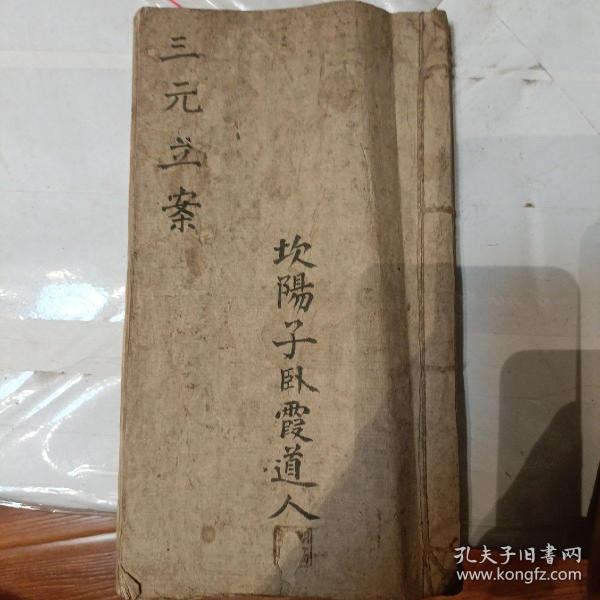 三元立案
坎陽子臥霞道人
孔夫子旧书网
www.kongfz.com